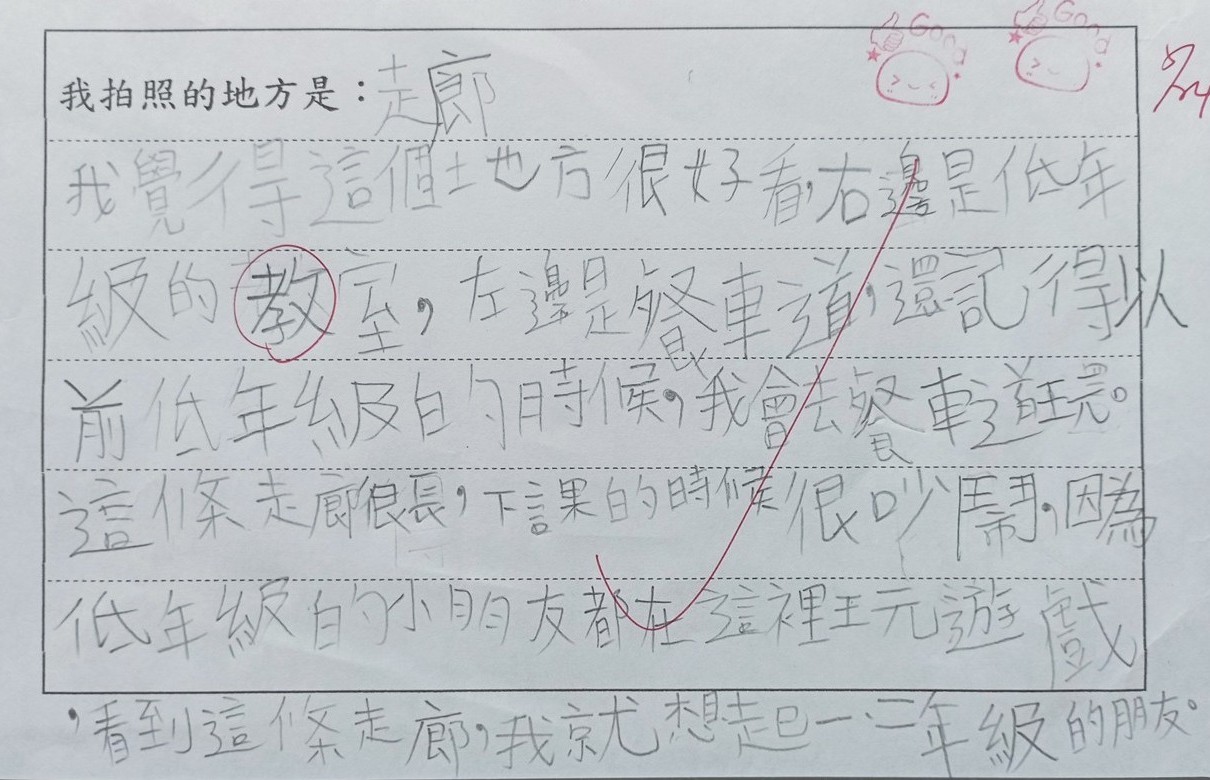 Good
Good
5/24
我拍照的地方是：走廊
我覺得這個地方很好看，右邊是低年
級的教室，左邊是餐車道，還記得以
前低年級的時候，我會去餐車道玩。
這條走廊很長，下課的時候很吵鬧，因為
低年級的小朋友都在這裡玩遊戲
，看到這條走廊，我就想起一、二年級的朋友。